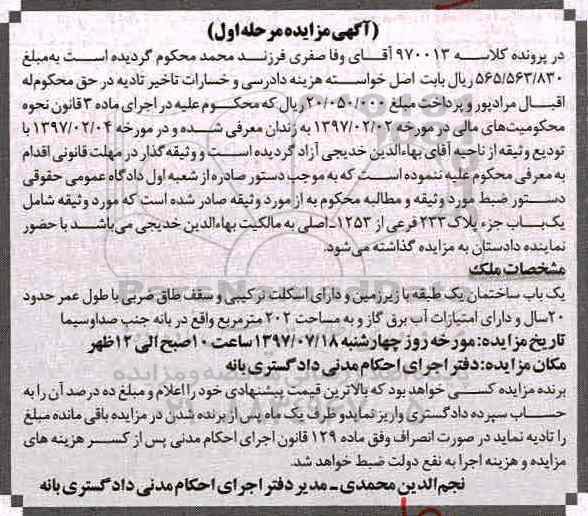 (آگهی مزایده مرحله اول)
در پرونده کلاسه ۹۷۰۰۱۳ آقای وفا صفری فرزند محمد محکوم گردیده است به مبلغ
۵۶۵/۵۶۳/۸۳۰ ریال بابت اصل خواسته هزینه دادرسی و خسارات تاخیر تادیه در حق محکوم له
اقبال مرادپور و پرداخت مبلغ ۲۰/۰۵۰/۰۰۰ ریال که محکوم علیه در اجرای ماده ۳ قانون نحوه
محکومیت‌های مالی در مورخه ۱۳۹۷/۰۲/۰۲ به زندان معرفی شده و در مورخه ۱۳۹۷/۰۲/۰۴ با
تودیع وثیقه از ناحیه آقای بهاءالدین خدیجی آزاد گردیده است و وثیقه گذار در مهلت قانونی اقدام
به معرفی محکوم علیه ننموده است که به موجب دستور صادره از شعبه اول دادگاه عمومی حقوقی
دستور ضبط مورد وثیقه و مطالبه محکوم به از مورد وثیقه صادر شده است که مورد وثیقه شامل
یک باب جزء پلاک ۲۳۳ فرعی از ۱۲۵۳ـ اصلی به مالکیت بهاءالدین خدیجی می‌باشد با حضور
نماینده دادستان به مزایده گذاشته می‌شود.
مشخصات ملک
یک باب ساختمان یک طبقه با زیرزمین و دارای اسکلت ترکیبی و سقف طاق ضربی با طول عمر حدود
۲۰ سال و دارای امتیازات آب برق گاز و به مساحت ۲۰۲ مترمربع واقع در بانه جنب صداوسیما
تاریخ مزایده: مورخه روز چهارشنبه ۱۳۹۷/۰۷/۱۸ ساعت ۱۰ صبح الی ۱۲ ظهر
مکان مزایده: دفتر اجرای احکام مدنی دادگستری بانه
برنده مزایده کسی خواهد بود که بالاترین قیمت پیشنهادی خود را اعلام و مبلغ ده درصد آن را به
حساب سپرده دادگستری واریز نماید و ظرف یک ماه پس از برنده شدن در مزایده باقی مانده مبلغ
را تادیه نماید در صورت انصراف وفق ماده ۱۲۹ قانون اجرای احکام مدنی پس از کسر هزینه های
مزایده و هزینه اجرا به نفع دولت ضبط خواهد شد.
نجم الدین محمدی ـ مدیر دفتر اجرای احکام مدنی دادگستری بانه